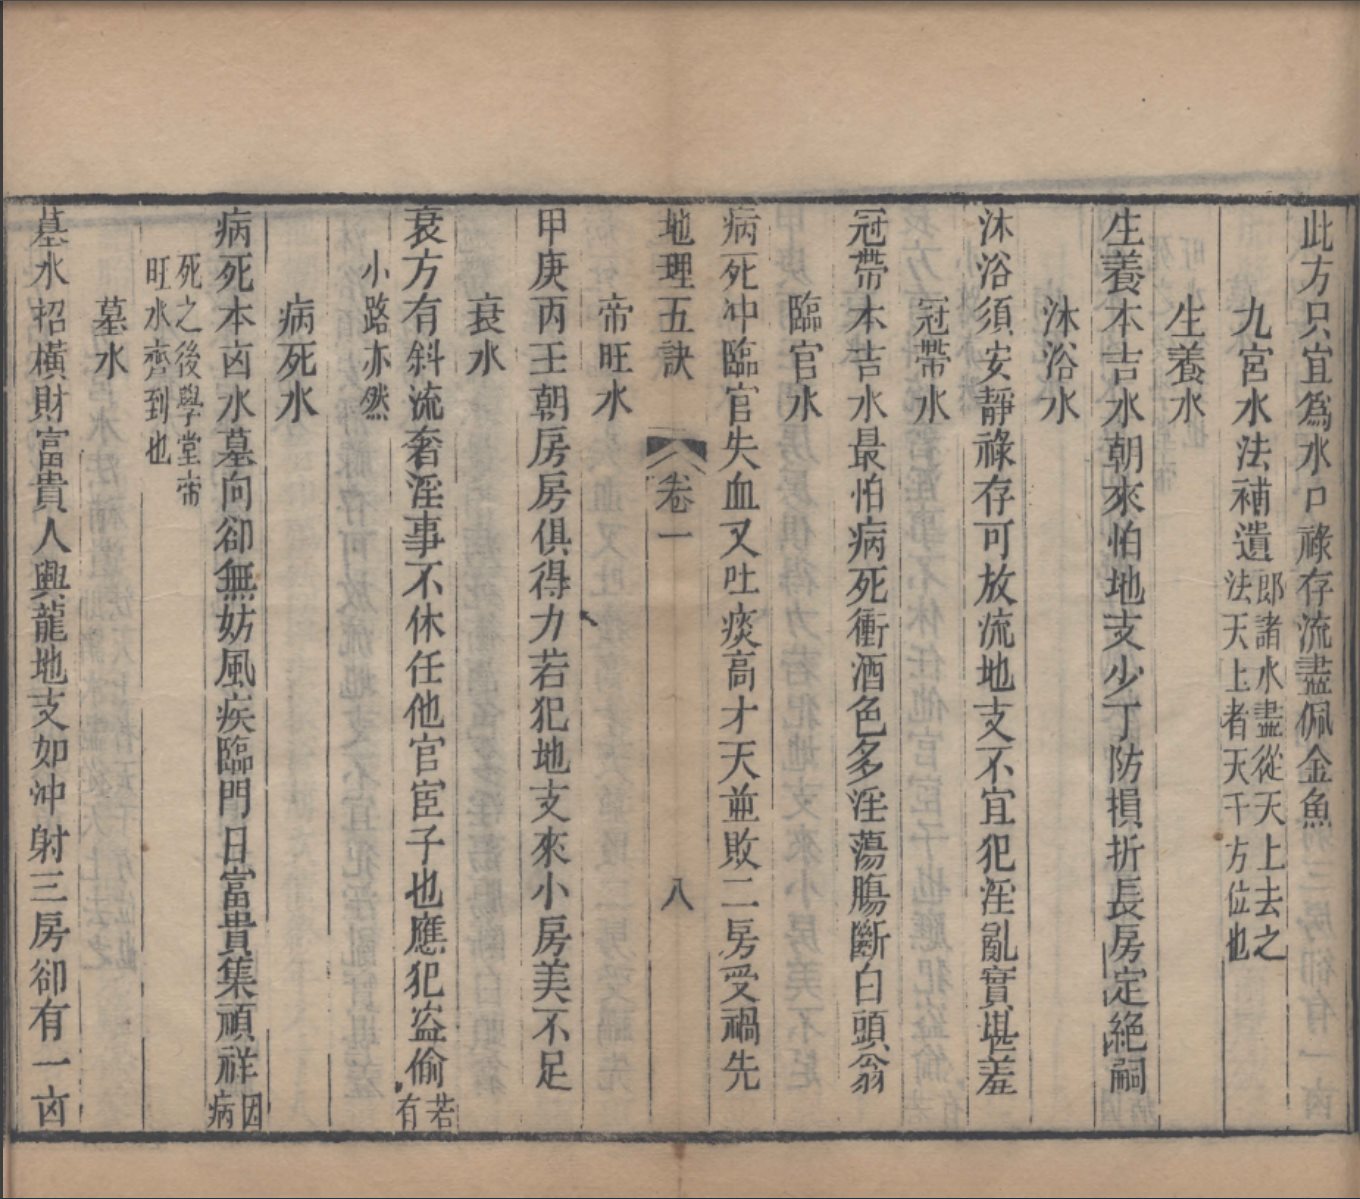 此方只宜爲水口祿存流盡佩金魚
九宮水法補遺
郎諸水盡從天上去之
法天上者天干方位也
生養水
生養本吉水朝來怕地支少丁防損折長房定絕嗣
沐浴水
沐浴須安靜祿存可放流地支不宜犯淫亂實堪羞
冠帶水
冠帶本吉水最怕病死衝酒色多淫蕩腸斷白頭翁
臨官水
病死冲臨官失血又吐痰高才天並敗二房受禍先
地理五訣
卷一
八
帝旺水
甲庚丙壬朝房房俱得力若犯地支來小房美不足
衰水
衰方有斜流奢淫事不休任他官宦子也應犯盜偷
若
有
小路亦然
病死水
病死本凶水墓向卻無妨風疾臨門日富貴集頑祥
因
病
死之後學堂帝
旺水齊到也
墓水
墓水招橫財富貴人興龍地支如沖射三房卻有一凶